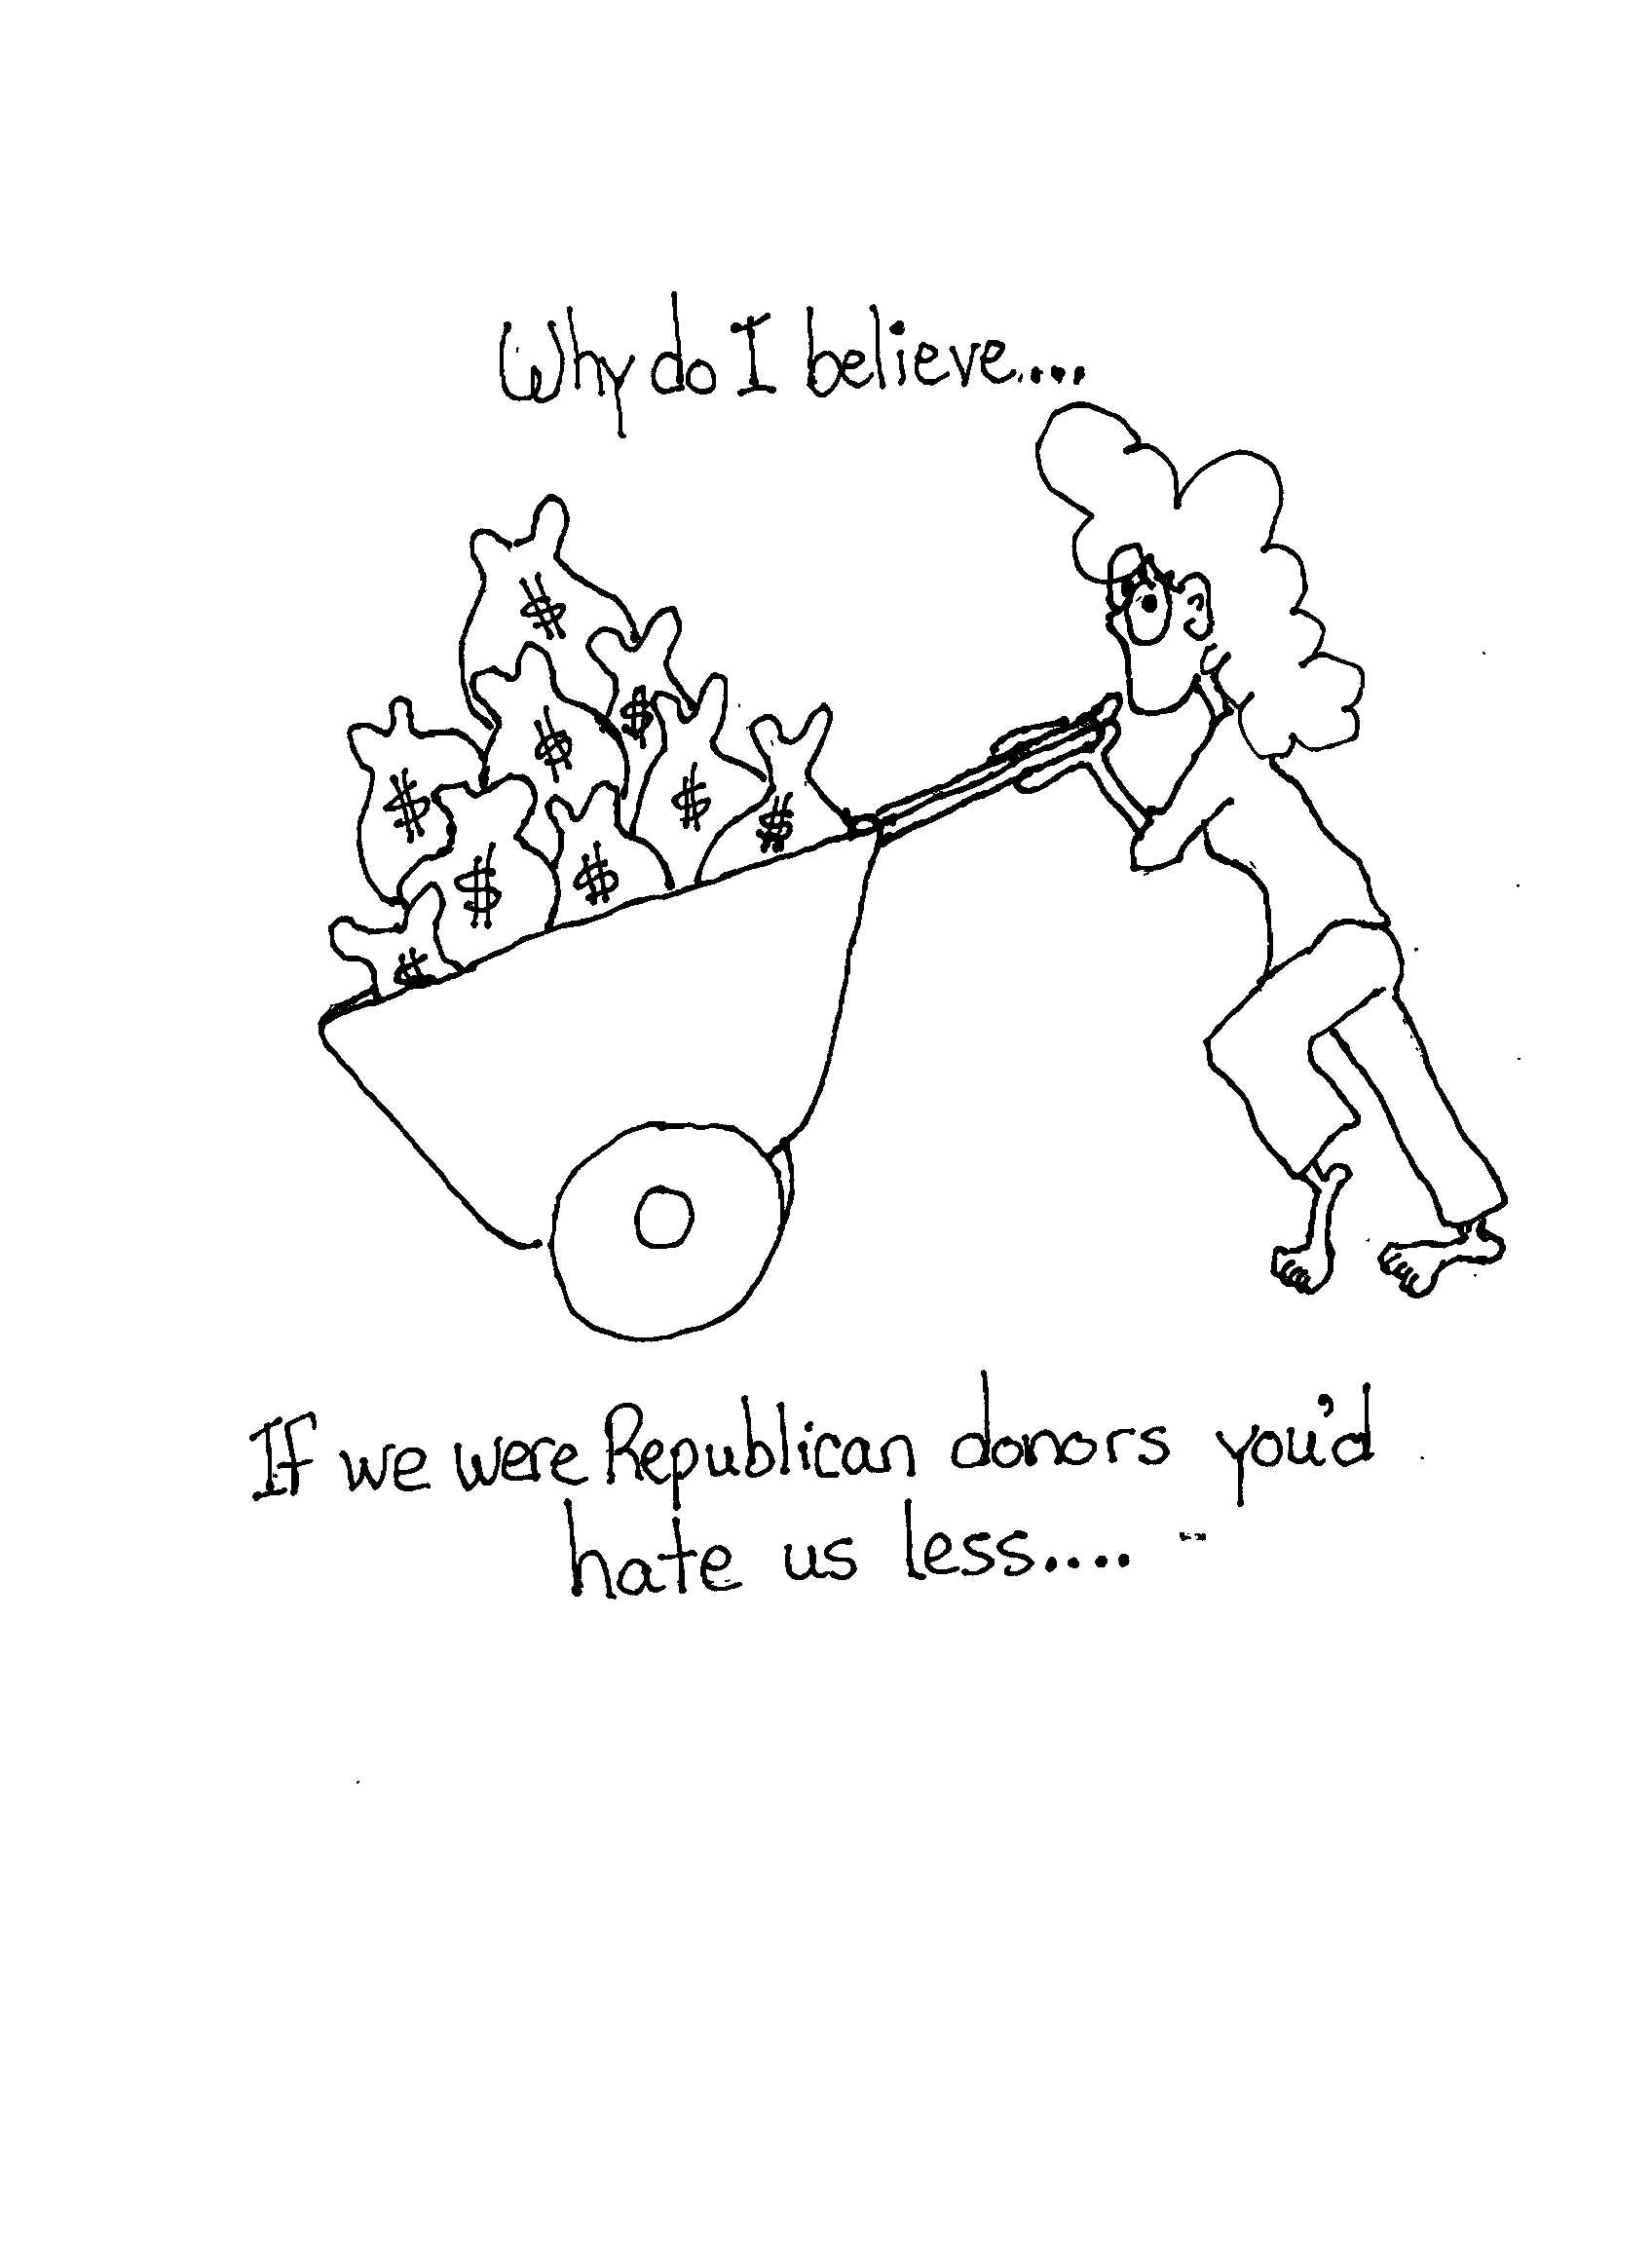 Why do I believe....
$
$
$
$
$
$
$
$
$
If we were Republican donors you'd
hate us less....